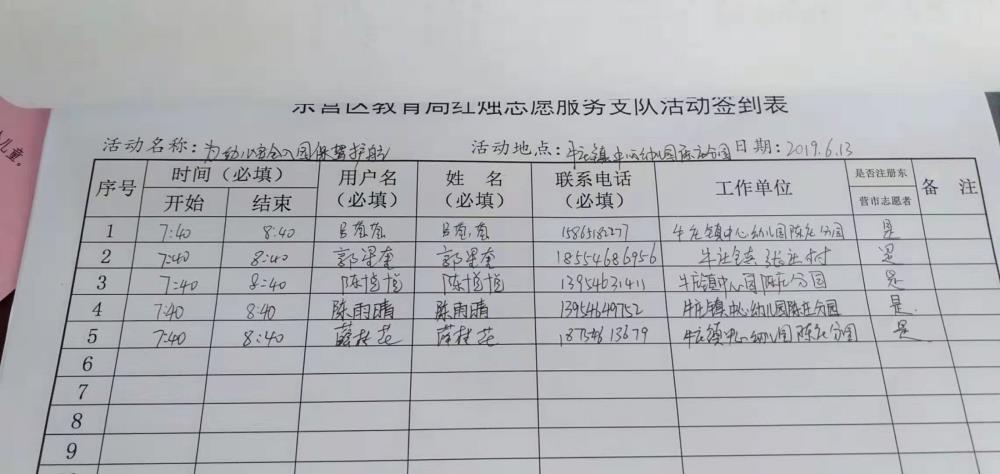 儿童。
东营区教育局红烛志愿服务支队活动签到表
活动名称：为幼儿安全入园保驾护航 活动地点：牛庄镇中心幼儿园陈庄分园 日期：2019.6.13
序号 时间（必填） 用户名（必填） 姓 名（必填） 联系电话（必填） 工作单位 是否注册东营市志愿者 备 注
开始 结束
1 7:40 8:40 15865182277 牛庄镇中心幼儿园陈庄分园 是
2 7:40 8:40 郭星奎 郭星奎 18554686956 牛庄镇张庄村 是
3 7:40 8:40 13954631411 牛庄镇中心园陈庄分园 是
4 7:40 8:40 陈雨晴 陈雨晴 13954649752 牛庄镇中心幼儿园陈庄分园 是
5 7:40 8:40 薛桂花 薛桂花 18754613679 牛庄镇中心幼儿园陈庄分园 是
6
7
8
9